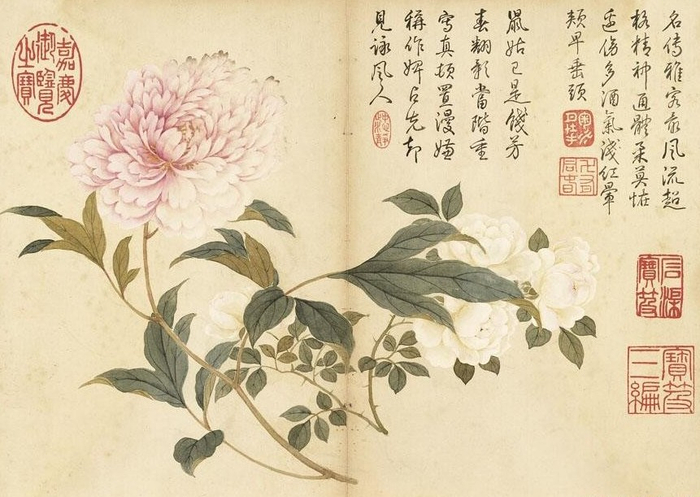 名傳雅客最風流超
格精神通體柔莫怪
傷多酒氣淺紅暈
頰早垂頭
鼠姑已是餞芳
春翻影當階重
寫真頓置漫嫌
稱作婢只先却
見詠風人
嘉慶
御覽
之寶
石渠
寶笈
寶笈
三編